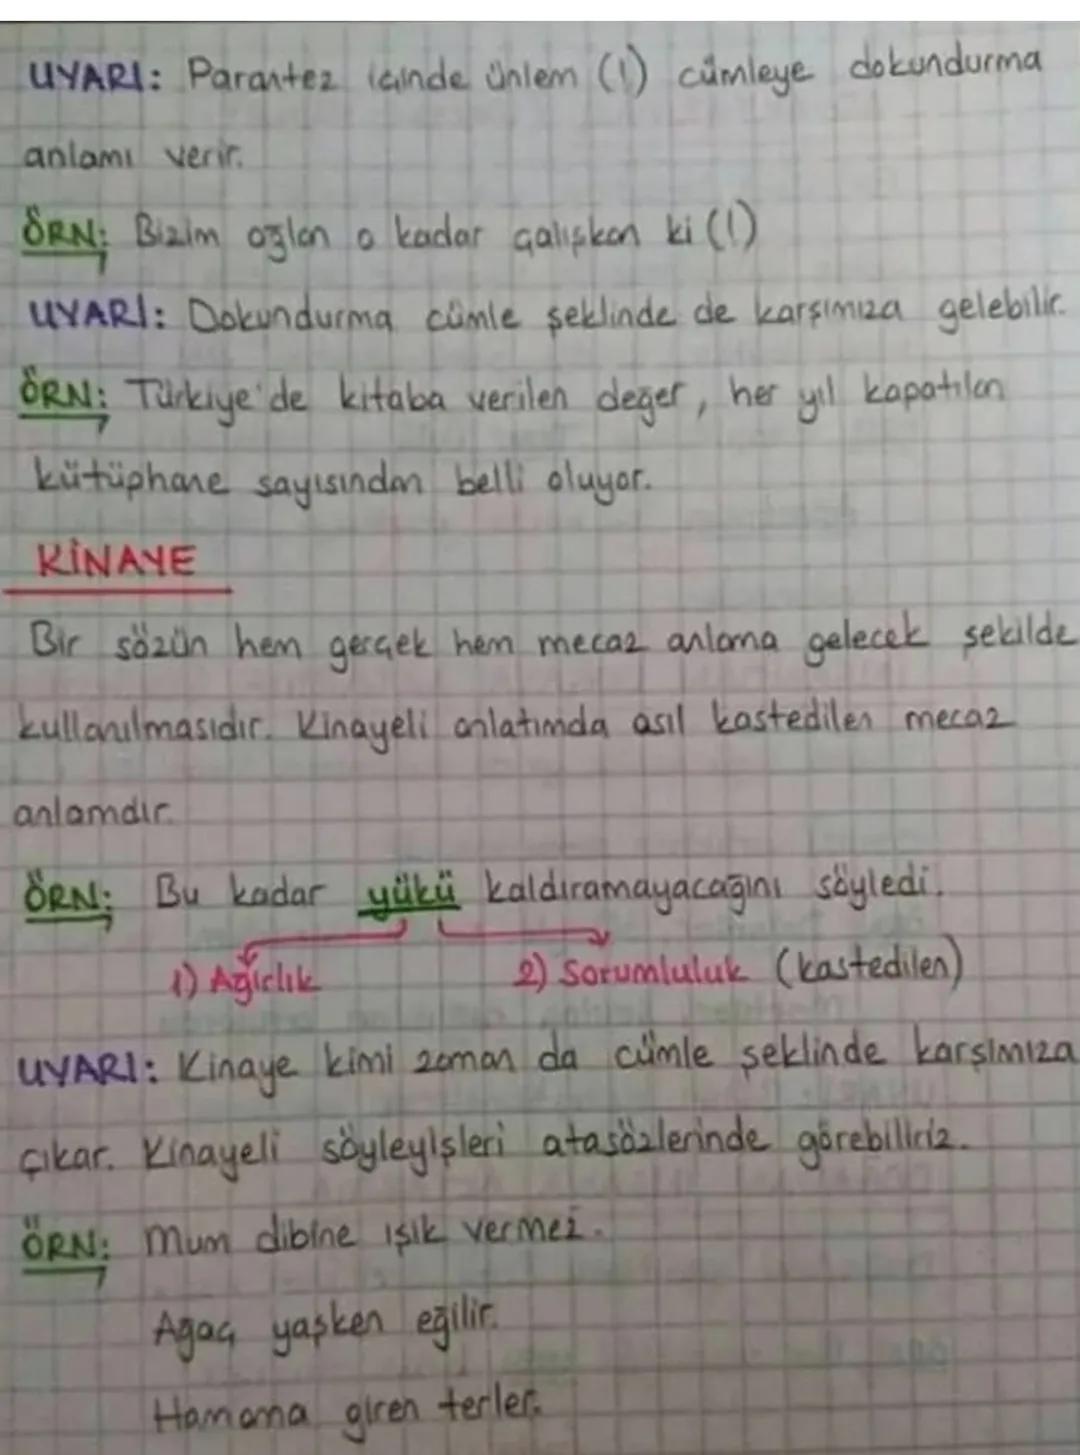 UYARI: Parantez içinde ünlem (!) cümleye dokundurma
anlamı verir.
ÖRN: Bizim oğlan o kadar çalışkan ki (!)
UYARI: Dokundurma cümle şeklinde de karşımıza gelebilir.
ÖRN: Türkiye'de kitaba verilen değer, her yıl kapatılan
kütüphane sayısından belli oluyor.
KİNAYE
Bir sözün hem gerçek hem mecaz anlama gelecek şekilde
kullanılmasıdır. Kinayeli anlatımda asıl kastedilen mecaz
anlamdır.
ÖRN: Bu kadar yükü kaldıramayacağını söyledi.
1) Ağırlık 2) Sorumluluk (kastedilen)
UYARI: Kinaye kimi zaman da cümle şeklinde karşımıza
çıkar. Kinayeli söyleyişleri atasözlerinde görebiliriz.
ÖRN: Mum dibine ışık vermez.
Ağaç yaşken eğilir.
Hamama giren terler.